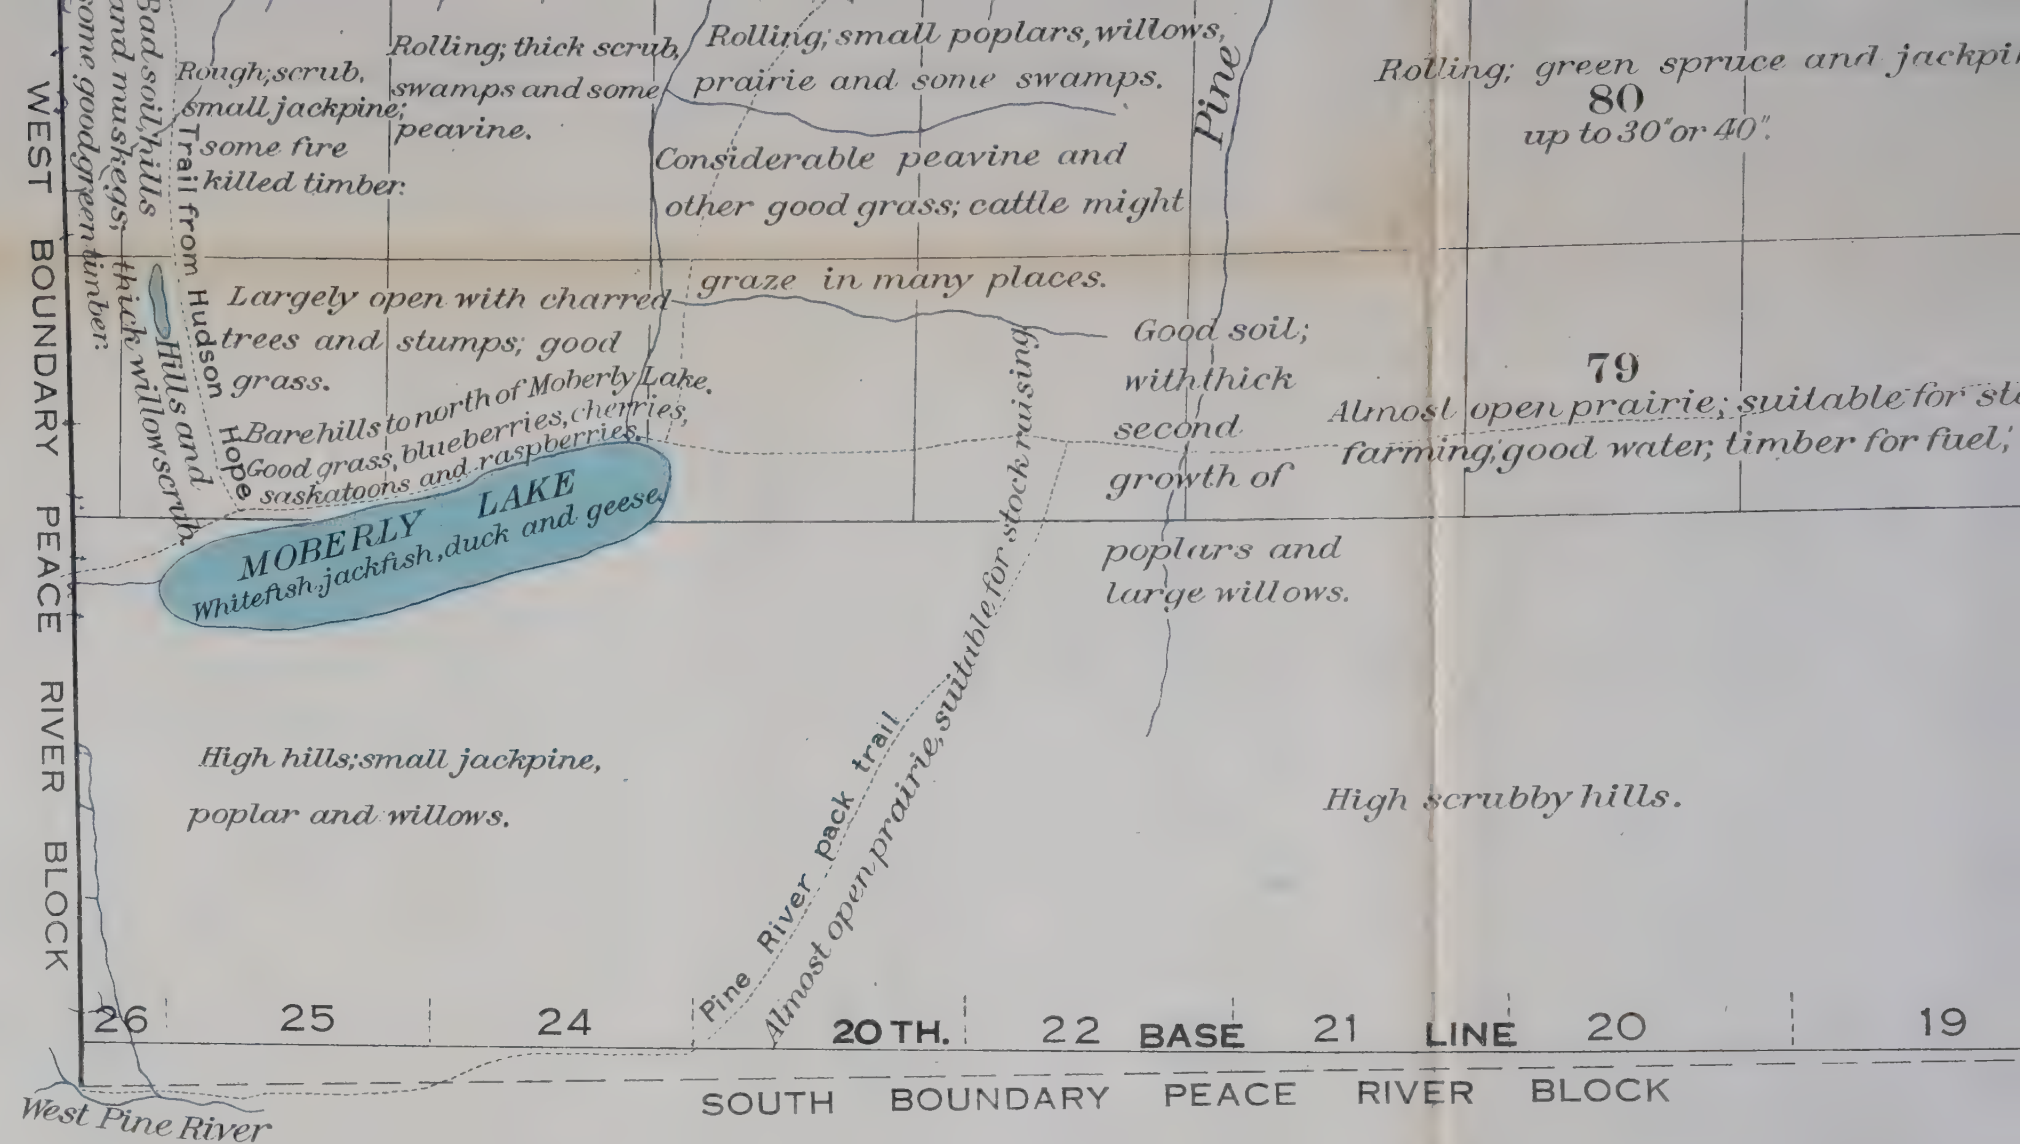 WEST BOUNDARY PEACE RIVER BLOCK
some good green timber.
and muskegs; thick willow scrub.
Bad soil, hills
Trail from Hudson Hope
Hills and
Rough; scrub,
small jackpine;
some fire
killed timber.
Rolling; thick scrub,
swamps and some
peavine.
Rolling; small poplars, willows,
prairie and some swamps.
Considerable peavine and
other good grass; cattle might
graze in many places.
Pine
Rolling; green spruce and jackpi
80
up to 30" or 40".
Largely open with charred
trees and stumps; good
grass.
Bare hills to north of Moberly Lake.
Good grass, blueberries, cherries,
saskatoons and raspberries.
MOBERLY LAKE
Whitefish, jackfish, duck and geese.
Good soil;
with thick
second
growth of
poplars and
large willows.
79
Almost open prairie; suitable for st
farming; good water; timber for fuel;
High hills; small jackpine,
poplar and willows.
Pine River pack trail
Almost open prairie, suitable for stock raising
High scrubby hills.
26 25 24 20TH. 22 BASE 21 LINE 20 19
SOUTH BOUNDARY PEACE RIVER BLOCK
West Pine River